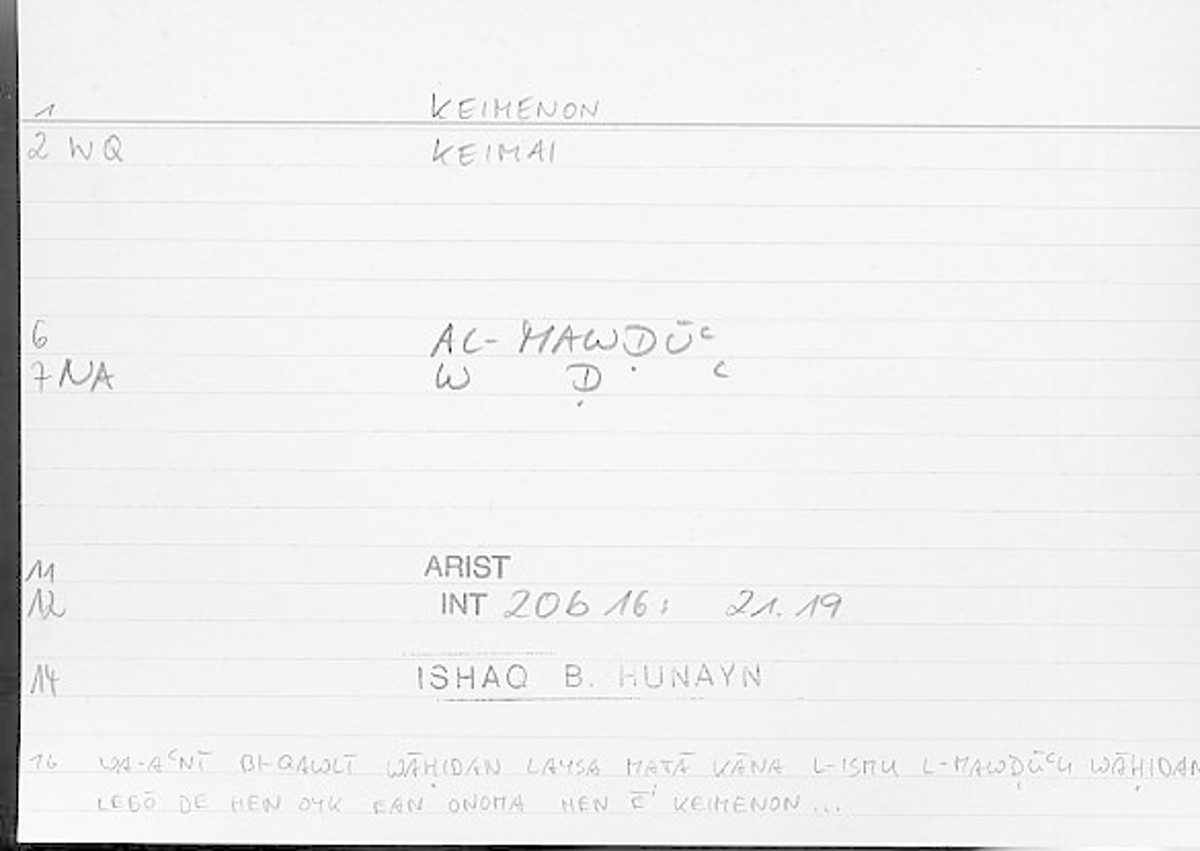 1 KEIMENON
2 WQ KEIMAI
6 AL-MAWḌŪʿ
7 NA W Ḍ ʿ
11 ARIST
12 INT 20b 16; 21.19
14 ISHAQ B. HUNAYN
16 WA-AʿNĪ BI-QAWLĪ WĀḤIDAN LAYSA MATĀ KĀNA L-ISMU L-MAWḌŪʿU WĀḤIDAN
LEGŌ DE HEN OYK EAN ONOMA HEN Ē' KEIMENON...